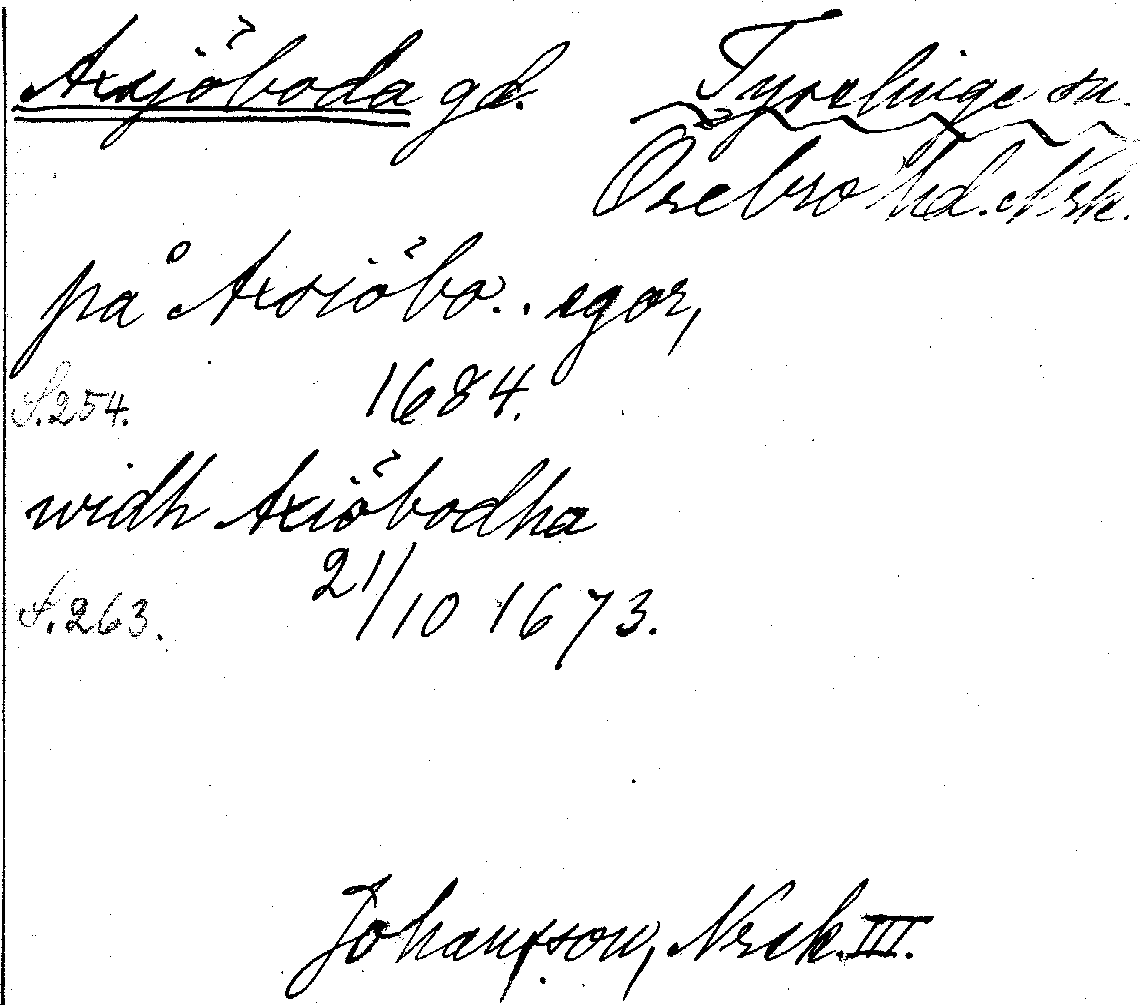 Axsjöboda gd. Tysslinge sn.
Örebro hd. Nrk.
på Axsiöbo.. egor,
S.254. 1684.
widh Axiöbodha
S.263. 21/10 1673.
Johansson, Nrck. III.